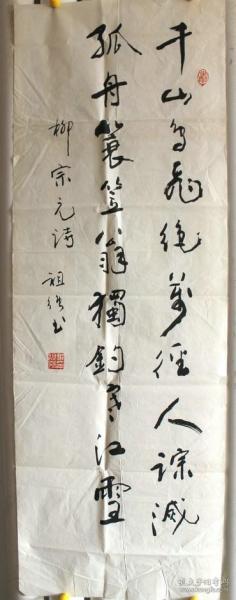 千山鸟飛绝萬徑人踪滅
孤舟蓑笠翁獨釣寒江雪
柳宗元诗
祖
书